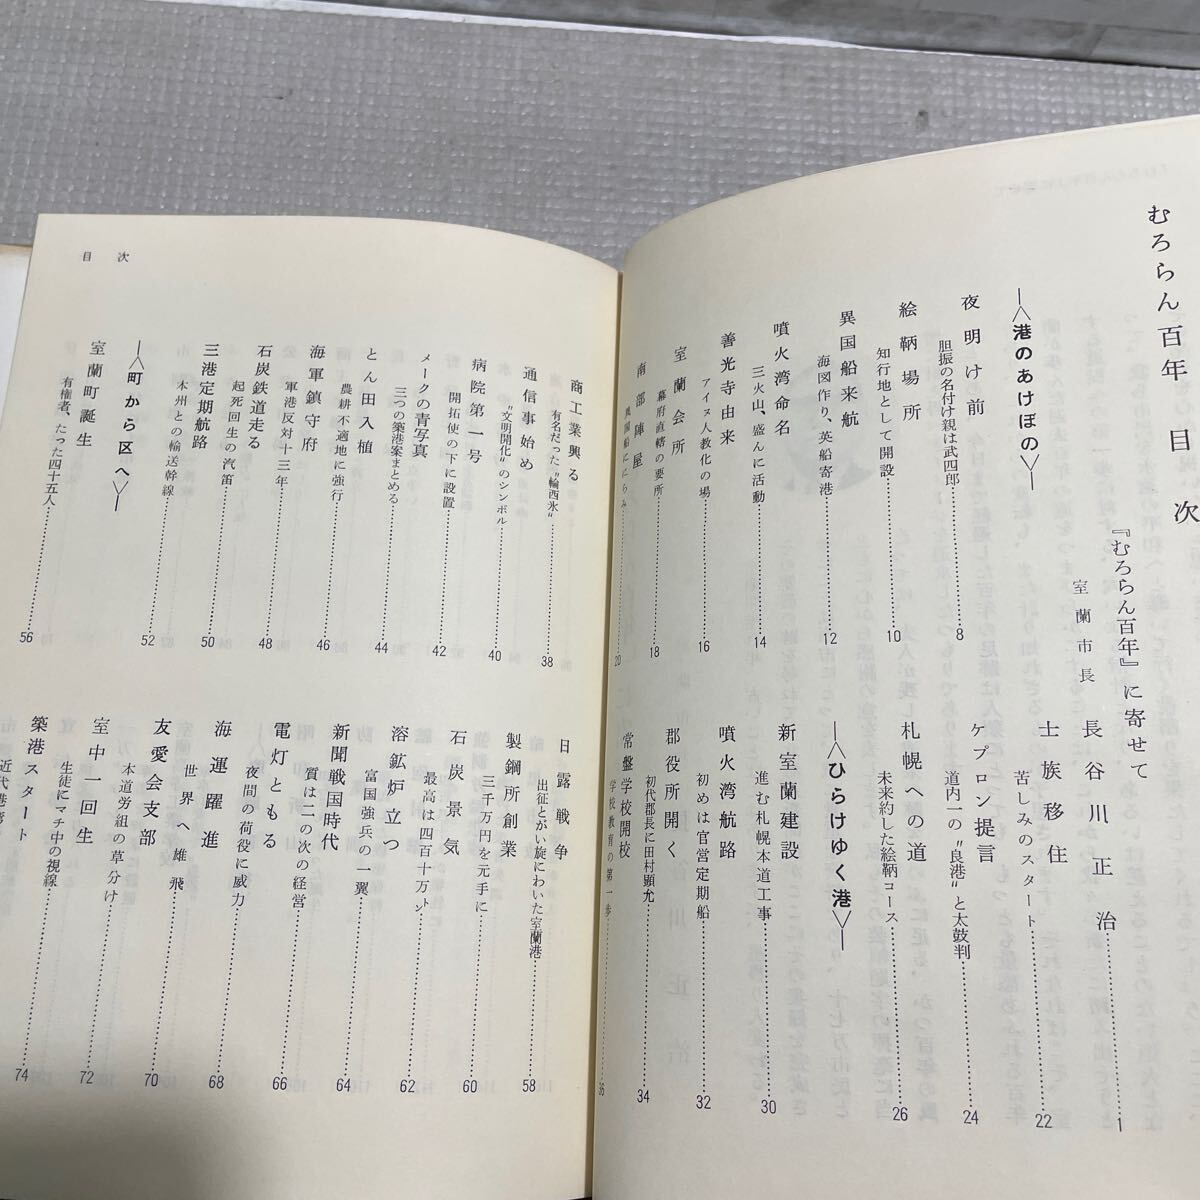 むろらん百年　目次
『むろらん百年』に寄せて
室蘭市長　長谷川正治……1
―〈港のあけぼの〉―
夜明け前　胆振の名付け親は武四郎……8
絵鞆場所　知行地として開設……10
異国船来航　海図作り、英船寄港……12
噴火湾命名　三火山、盛んに活動……14
善光寺由来　アイヌ人教化の場……16
室蘭会所　幕府直轄の要所……18
南部陣屋　異国船ににらみ……20
士族移住　苦しみのスタート……22
ケプロン提言　道内一の〝良港〟と太鼓判……24
札幌への道　未来約した絵鞆コース……26
―〈ひらけゆく港〉―
新室蘭建設　進む札幌本道工事……30
噴火湾航路　初めは官営定期船……32
郡役所開く　初代郡長に田村顕允……34
常盤学校開校　学校教育の第一歩……36
目次
商工業興る　有名だった〝輪西氷〟……38
通信事始め　〝文明開化〟のシンボル……40
病院第一号　開拓使の下に設置……42
メークの青写真　三つの築港案まとめる……44
とん田入植　農耕不適地に強行……46
海軍鎮守府　軍港反対十三年……48
石炭鉄道走る　起死回生の汽笛……50
三港定期航路　本州との輸送幹線……52
―〈町から区へ〉―
室蘭町誕生　有権者、たった四十五人……56
日露戦争　出征とがい旋にわいた室蘭港……58
製鋼所創業　三千万円を元手に……60
石炭景気　最高は四百十万トン……62
溶鉱炉立つ　富国強兵の一翼……64
新聞戦国時代　質は二の次の経営……66
電灯ともる　夜間の荷役に威力……68
海運躍進　世界へ雄飛……70
友愛会支部　本道労組の草分け……72
室中一回生　生徒にマチ中の視線……74
築港スタート　近代港湾